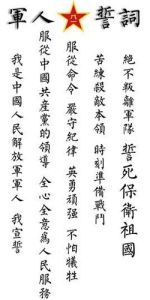 軍人 八一 誓詞
我是中國人民解放軍軍人 我宣誓
服從中國共產黨的領導 全心全意爲人民服務
服從命令 嚴守紀律 英勇頑强 不怕犧牲
苦練殺敵本領 時刻準備戰鬥
絕不叛離軍隊 誓死保衛祖國